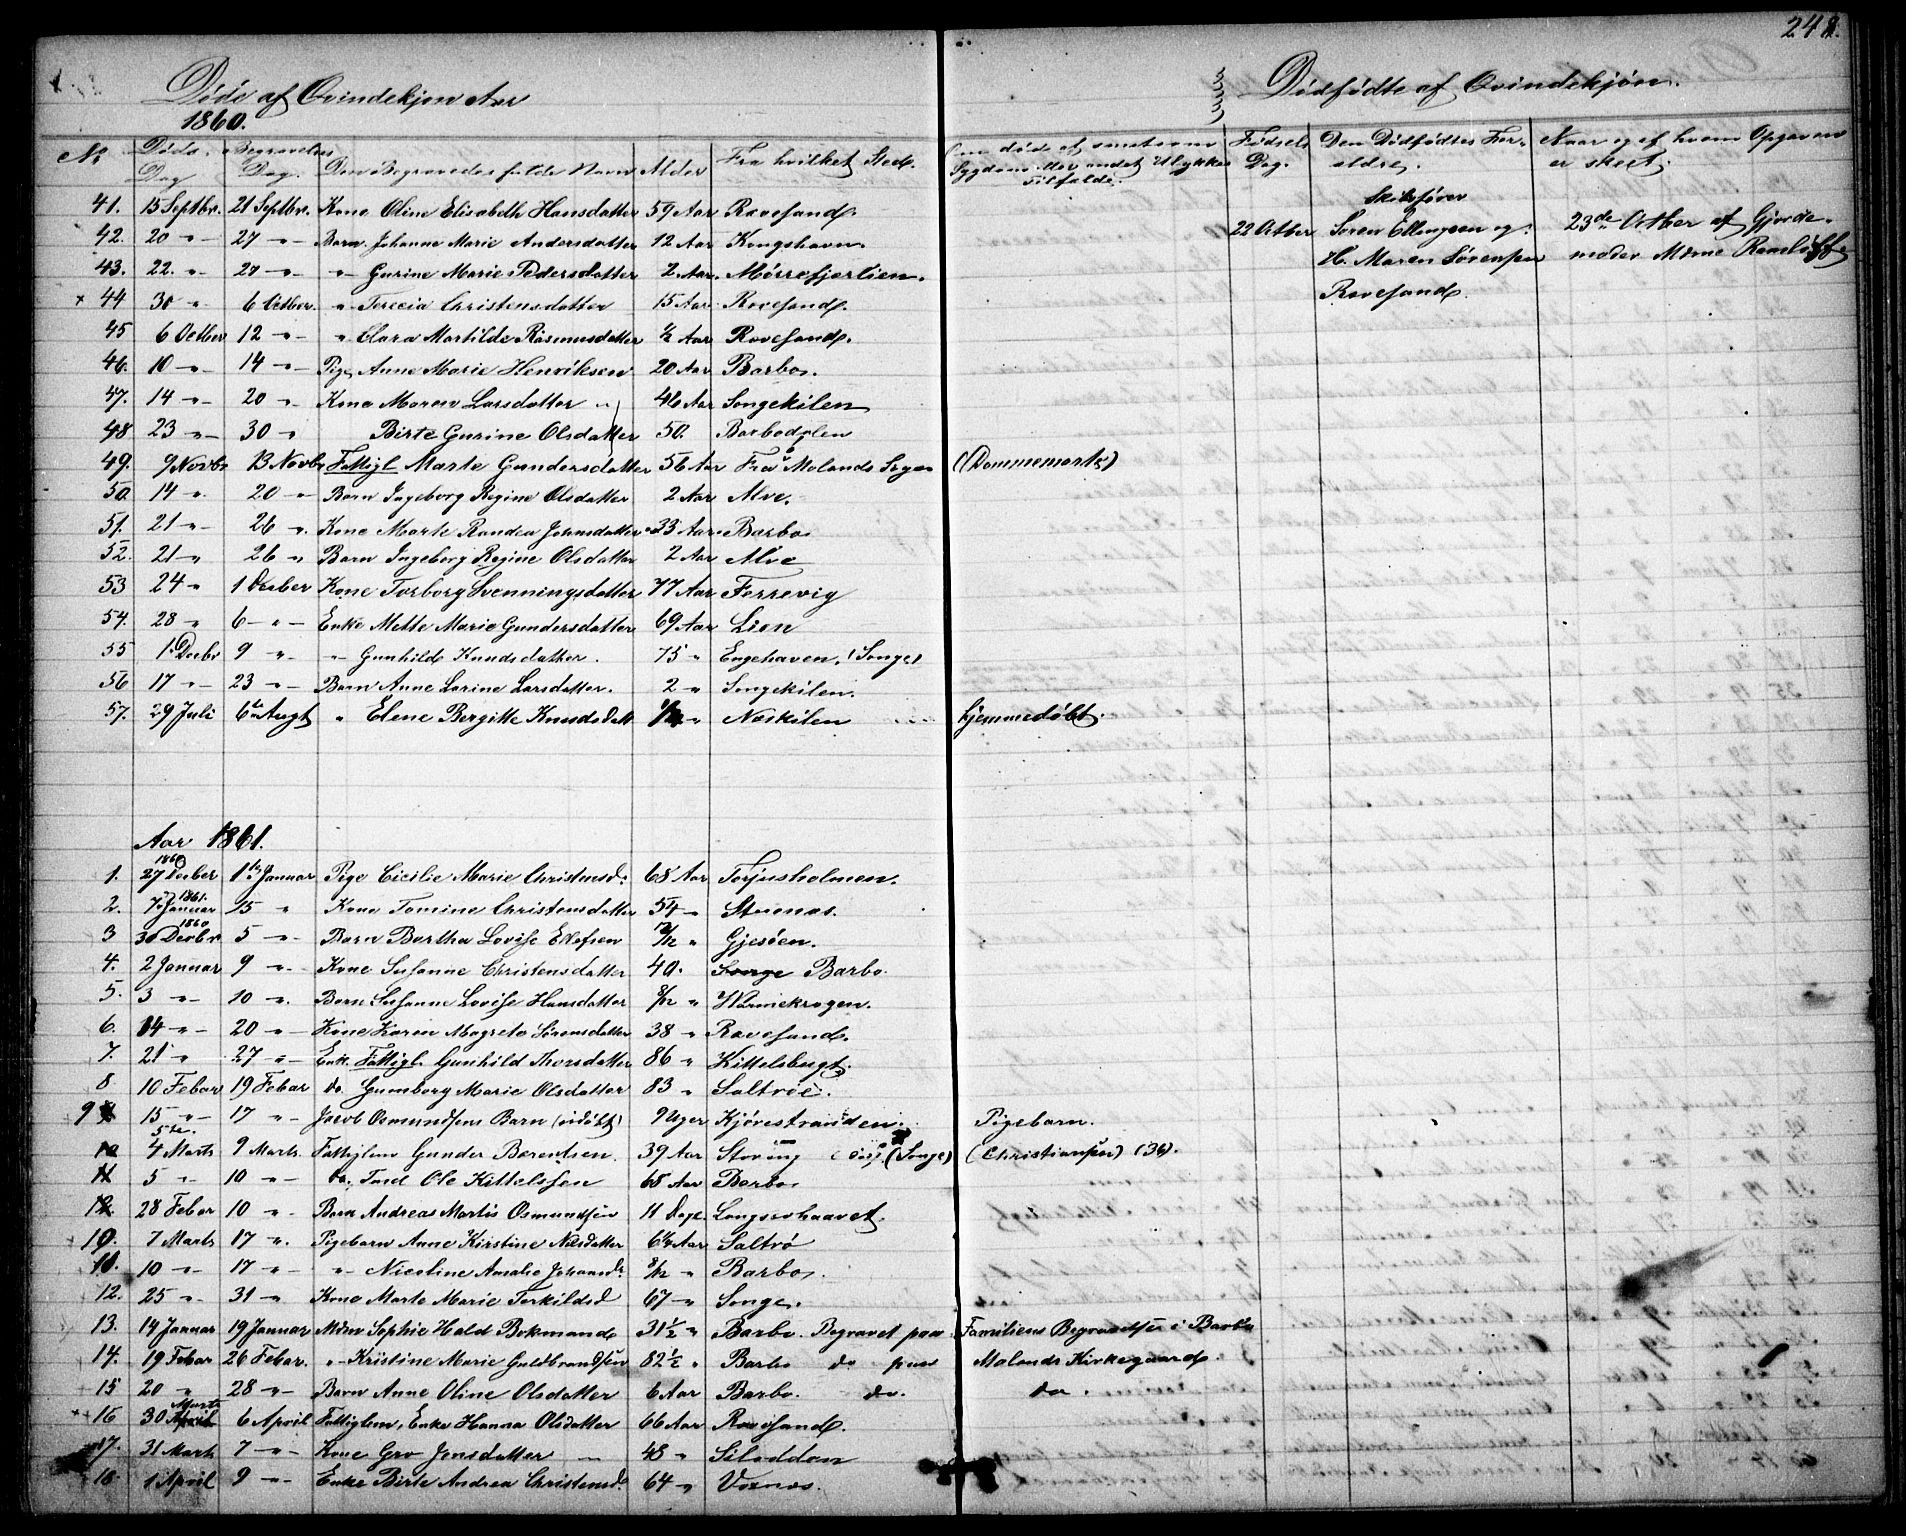 248.
Døde af Qvindekjøn Aar
1860.
Dødfødte af Qvindekjøn.
No Døds Dag Begravelses Dag. Den Begravedes fulde Navn Alder Fra hvilket Sted. Om død af smitsom Sygdom eller andet Ulykkes Tilfælde. Fødsels Dag. Den Dødfødtes Forældre. Naar og af hvem Opgaven er skeet.
41. 15 Septbr. 21 Septbr. Kone Oline Elisabeth Hansdatter 59 Aar Ravesand.
42. 20 " 27 " Barn Johanne Marie Andersdatter 12 Aar Kongshavn
22 Octber Skibsfører Søren Ellingsen og H. Maren Sørensen Ravesand. 23de Octber af Gjordemoder Mørne
43. 22. " 27 " " Gurine Marie Pedersdatter 2 Aar. Mørrefjerlien.
+ 44 30 " 6 Octber. " Terecia Christensdatter 15 Aar Ravesand.
45 6 Octber 12 " " Clara Martilde Rasmusdatter ½ Aar Ravesand.
46. 10 " 14 " Pige Anne Marie Henriksen 20 Aar Barbo.
47. 14 " 20 " Kone Maren Larsdatter 46 Aar Songekilen
48 23 " 30 " Birte Gurine Olsdatter 50. Barbodalen
49. 9 Novb. 13 Novb. Fattigl Marte Gundersdatter 56 Aar Fra Molands Sogn (Dommemarte)
50. 14 " 20 " Barn Ingeborg Regine Olsdatter 2 Aar Alve.
51. 21 " 26 " Kone Marte Randea Johnsdatter 33 Aar Barbo
52. 21 " 26 " Barn Ingeborg Regine Olsdatter 2 Aar Alve
53 24 " 1 Decber Kone Torborg Svenningsdatter 77 Aar Ferrevig
54. 28 " 6 " Enke Mette Marie Gundersdatter 69 Aar Lien
55 1. Decbr 9 " " Gunhild Knudsdatter. 75 " Engehaven. (Songe)
56 17 " 23 " Barn Anne Larine Larsdatter. 2 " Songekilen.
57. 29 Juli 6te Augt " Elene Bergitte Knudsdatt " Næskilen hjemmedøbt.
Aar 1861.
1. 1860 27 Decber 1ste Januar Pige Cicilie Marie Christensd. 68 Aar Torjusholmen.
2. 1861. 7 Januar 15 " Kone Tomine Christensdatter 54 " Stuenæs.
3 1860 30 Decbr 5 " Barn Bertha Lovise Ellefsen " Gjesøen.
4. 2 Januar 9 " Kone Susanne Christensdatter 40. Songe Barbo.
5. 3 " 10 " Barn Susanne Lovise Hansdatter 8/12 " Warmekrogen.
6. 14 " 20 " Kone Karen Magrete Sørensdatter 38 " Ravesand.
7. 21 " 27 " Enk. Fattigl. Gunhild Thorsdatter 86 " Kittelsbugt.
8 10 Febar 19 Febar do. Gumborg Marie Olsdatter 83 " Saltrøe.
9 15 " 17 " Jacob Osmundsens Barn (udøbt) 9 Uger Kjørestranden. Pigebarn.
10 4 Marts 9 Marts. Fattiglem Gunder Berentsen. 39 Aar Støring (Songe) (Christiansen) (36).
11 5 " 10 " do. Tnd Ole Kittelssen 68 Aar Barbo
12. 28 Febar 10 " Barn Andreas Martis Osmundsen 11 Dage. Langsevhaavet.
10. 7 Marts 17 " Pigebarn Anne Kirstine Nilsdatter 6½ Aar Saltrø
11. 10 " 17 " " Nicoline Amalie Johannd. 8/12 " Barbo.
12. 25 " 31 " Kone Marte Marie Terkildsd 67 " Songe.
13. 14 Januar 19 Januar Mdm Sophie Hald Bokmand 31½ " Barbo. Begravet paa Familiens Begravelse i Barbo
14. 19 Febar 26 Febar. " Kristine Marie Guldbrandsen 82½ " Barbo do paa Molands Kirkegaard.
15 20 " 28 " Barn Anne Oline Olsdatter 6 Aar Barbo. do. do.
+ 16 30 Marts April 6 April Fattiglem, Enke Hanna Olsdatter 66 Aar Ravesand.
17. 31 Marts 7 " Kone Gro Jensdatter 48 " Silodden
18. 1 April 9 " Enke Birte Andrea Christensd. 64 " Voxnæs.